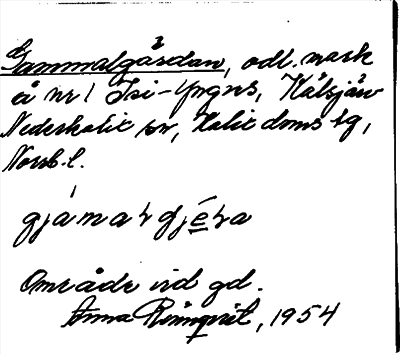 Gammalgården, odl. mark
å nr 1 Isi-Yngvs, Kälsjärv
Nederkalix sn, Kalix doms tg,
Norrb. l.
gjámaɫgjéɫa
Område vid gd.
Anna Rönnqvist, 1954